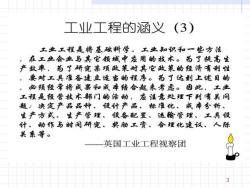 工业工程的涵义 (3)
工业工程是将基础科学、工业知识和一些方法
，在工业企业与其它领域中应用的技术。为了提高生
产效率，为了研究某项政策和其它政策的经济有利性
，要对工具准备建立适当的程序。为了达到上述目的
，必须经常将成果和成本结合起来考虑。因此，工业
工程是经营技术部门的活动，应注意处理下列有关问
题：决定产品品种、设计产品、标准化、成本分析、
生产方式、生产管理、设备配置、运输管理、工具设
计、动作与时间研究、奖励工资、合理化建议、人际
关系等。
——英国工业工程视察团
3